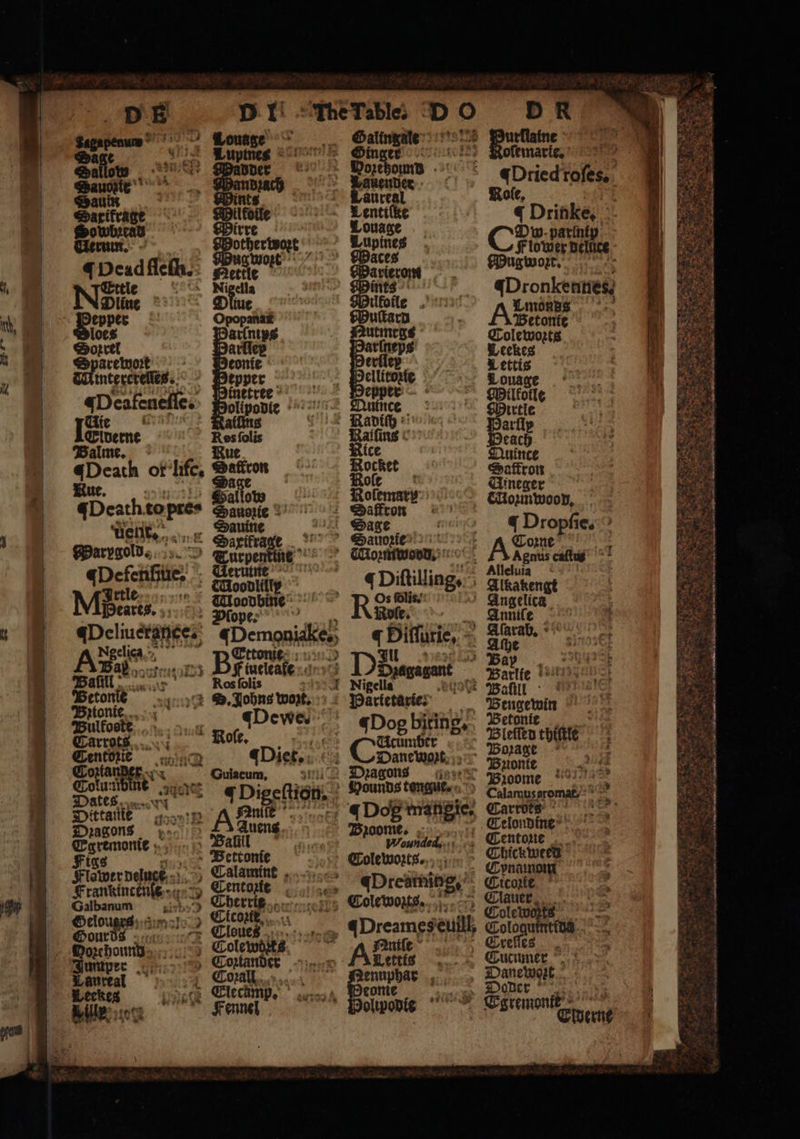 DE
DI
The Table.
DO
DR
Sagapenum
Sage
Sallow
Sauorie
Sauin
Saxifrage
Sowbread
Veruin.
¶ Dead flesh.
NEttle
Oliue
Pepper
Sloes
Sorrel
Sparewort
Wintercresses.
¶ Deafenesse.
IUie
Elverne
Balme.
¶ Death of life,
Rue.
¶ Death to preuent.
Marygold.
¶ Defensiue.
MIrtle
Peares.
¶ Deliuerances
ANgelica
Bay
Basill
Betonie
Brionie
Bulfoote
Carrots
Centorie
Coriander
Columbine
Dates
Dittanie
Dragons
Egremonie
Figs
Flower deluce
Frankincense
Galbanum
Gelouers
Gourds
Horehound
Juniper
Laureal
Leekes
Lilly
Louage
Lupines
Madder
Mandrach
Mints
Milfoile
Mirre
Motherwort
Mugwort
Nettle
Nigella
Oliue
Opopanax
Parsnips
Parsley
Peonie
Pepper
Pinetree
Polipodie
Raisins
Ros solis
Rue
Saffron
Sage
Sallow
Sauorie
Sauine
Saxifrage
Turpentine
Veruine
Woodlilly
Woodbine
Ysope.
¶ Demoniakes,
BEttonie
Fiueleafe
Ros solis
S. Johns wort.
¶ Dewe.
Rose.
¶ Diet.
Guiacum,
¶ Digestion.
ANnise
Auens
Basill
Bettonie
Calamint
Centorie
Cherries
Cicorie
Cloues
Coleworts
Coriander
Corall
Elecamp.
Fennel
Galingale
Ginger
Horehound
Lauender
Laureal
Lentiske
Louage
Lupines
Maces
Marierom
Mints
Milfoile
Mustard
Nutmegs
Parsneps
Persley
Pellitorie
Pepper
Quince
Radish
Raisins
Rice
Rocket
Rose
Rosemary
Saffron
Sage
Sauorie
Wormwood,
¶ Distilling.
ROs solis
Rose.
¶ Diffurie,
DIll
Dragagant
Nigella
Parietarie
¶ Dog biting.
CUcumber
Danewort
Dragons
Hounds tongue.
¶ Dog mangie.
Broome.
Wounded,
Coleworts.
¶ Dreaming,
Coleworts.
¶ Dreames euill,
ANnise
Lettis
Nenuphar
Peonie
Polipodie
Purslaine
Rosemarie.
¶ Dried roses.
Rose,
¶ Drinke,
COw-parsnip
Flower deluce
Mugwort.
¶ Dronkennes,
ALmonds
Betonie
Coleworts
Leekes
Lettis
Louage
Milfoile
Mirtle
Parsly
Peach
Quince
Saffron
Vineger
Wormwood,
¶ Dropsie.
ACorne
Agnus castus
Alleluia
Alkakengt
Angelica
Annise
Asarab.
Ashe
Bay
Barlie
Basill
Bengewin
Betonie
Blessed thistle
Borage
Brionie
Broome
Calamus aromat.
Carrots
Celondine
Centorie
Chickweed
Cynamom
Cicorie
Clauer
Coleworts
Coloquintida
Cresses
Cucumer
Danewort
Doder
Egremonie
Elverne